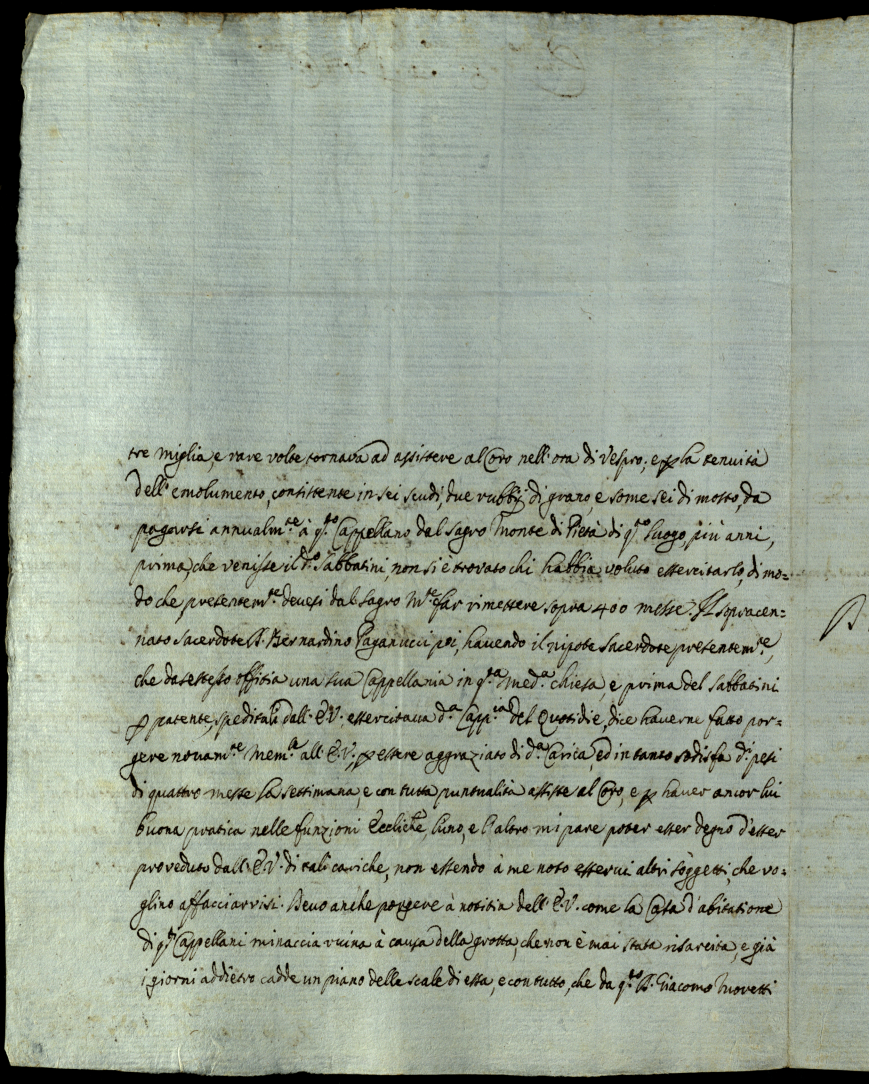 tre miglia, e rare volte tornava ad assistere al Coro nell'ora di Vespro; e p la tenuità
dell'emolumento, consistente in sei scudi, due rubbij di grano, e some sei di mosto, da
pagarsi annualm.te à q.to Cappellano dal Sagro Monte di Pietà di q.to luogo, più anni,
prima, che venisse il d.o Sabbatini, non si è trovato chi habbia voluto essercitarlo, di mo=
do che presentem.te devesi dal Sagro M.te far rimettere sopra 400 messe. Il sopracen=
nato Sacerdote D. Bernardino Paganucci poi, havendo il nipote Sacerdote presentem.te,
che da se stesso offitia una sua Cappellania in q.ta med.a chiesa, e prima del Sabbatini
p patente, speditali dall'E.V. essercitava d.a Capp.nia del Quotidie, dice haverne fatto por=
gere novam.te mem.le all'E.V., p essere aggraziato di d.a Carica, ed in tanto sodisfa d.i pesi
di quattro messe la settimana, e con tutta puntualità assiste al Coro, e p haver ancor lui
buona pratica nelle funzioni Eccliche, l'uno, e l'altro mi pare poter esser degno d'esser
proveduto dall'E.V. di tali cariche, non essendo à me noto esservi altri soggetti, che vo=
glino affacciarvisi. Devo anche porgere à notitia dell'E.V. come la Casa d'abitatione
di q.ti Cappellani minaccia ruina à causa della grotta, che non è mai stata risarcita, e già
i giorni addietro cadde un piano delle scale di essa, e con tutto, che da q.to D. Giacomo